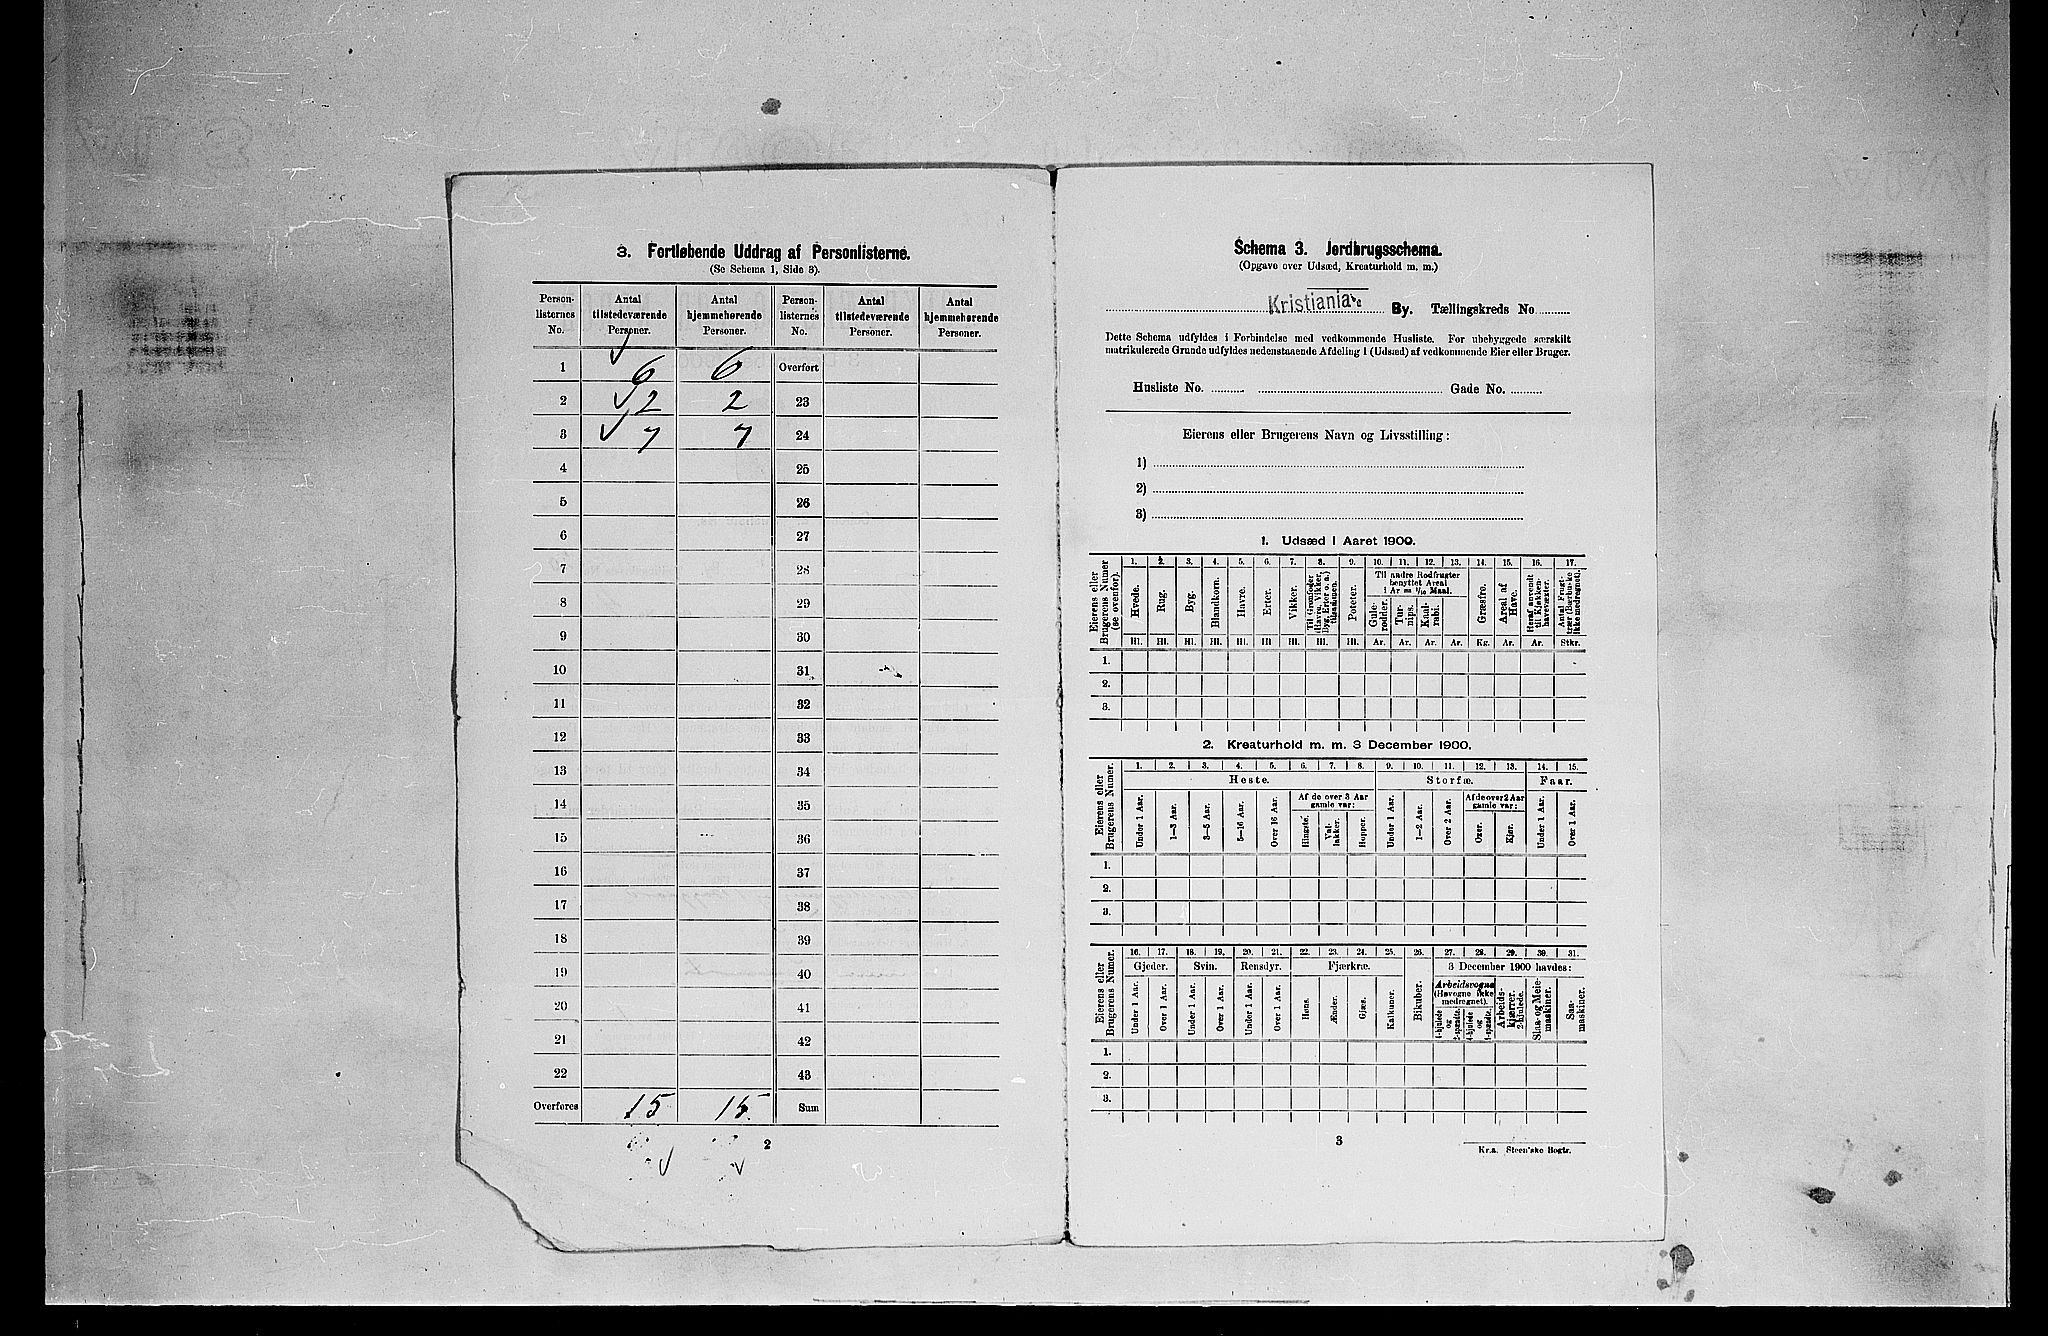 3. Fortløbende Uddrag af Personlisterne.
(Se Schema 1, Side 3).
Person-listernes No. Antal tilstedeværende Personer. Antal hjemmehørende Personer. Person-listernes No. Antal tilstedeværende Personer. Antal hjemmehørende Personer.
1 6 6 Overført
2 2 2 23
3 7 7 24
4 25
5 26
6 27
7 28
8 29
9 30
10 31
11 32
12 33
13 34
14 35
15 36
16 37
17 38
18 39
19 40
20 41
21 42
22 43
Overføres 15 15 Sum
2
Schema 3. Jordbrugsschema.
(Opgave over Udsæd, Kreaturhold m. m.)
Kristiania By. Tællingskreds No
Dette Schema udfyldes i Forbindelse med vedkommende Husliste. For ubebyggede særskilt
matrikulerede Grunde udfyldes nedenstaaende Afdeling 1 (Udsæd) af vedkommende Eier eller Bruger.
Husliste No. Gade No.
Eierens eller Brugerens Navn og Livsstilling:
1)
2)
3)
1. Udsæd i Aaret 1900.
Eierens eller Brugerens Numer (se ovenfor).
1. 2. 3. 4. 5. 6. 7. 8. 9. 10. 11. 12. 13. 14. 15. 16. 17.
Til andre Rodfrugter benyttet Areal 1 Ar = 1/10 Maal.
Hvede. Rug. Byg. Blandkorn. Havre. Erter. Vikker. Til Grønfoder (Havre, Vikker, Byg, Erter o. a.) tilsaadmen. Poteter. Gule-rødder. Tur-nips. Kaal-rabi. Græsfrø. Areal af Have. Heraf anvendt til Kjøkken-havevæxter. Antal Frugt-trær (Bærbuske ikke medregnet).
Hl. Hl. Hl. Hl. Hl. Hl. Hl. Hl. Hl. Ar. Ar. Ar. Ar. Kg. Ar. Ar. Stkr.
1.
2.
3.
2. Kreaturhold m. m. 3 December 1900.
Eierens eller Brugerens Numer.
1. 2. 3. 4. 5. 6. 7. 8. 9. 10. 11. 12. 13. 14. 15.
Heste. Storfæ. Faar.
Af de over 3 Aar gamle var: Af de over 2 Aar gamle var:
Under 1 Aar. 1—3 Aar. 3—5 Aar. 5—16 Aar. Over 16 Aar. Hingste. Val-lakker. Hopper. Under 1 Aar. 1—2 Aar. Over 2 Aar. Oxer. Kjør. Under 1 Aar. Over 1 Aar.
1.
2.
3.
Eierens eller Brugerens Numer.
16. 17. 18. 19. 20. 21. 22. 23. 24. 25. 26. 27. 28. 29. 30. 31.
Gjeder. Svin. Rensdyr. Fjærkræ. 3 December 1900 havdes:
Arbeidsvogne (Høvogne ikke medregnet).
Under 1 Aar. Over 1 Aar. Under 1 Aar. Over 1 Aar. Under 1 Aar. Over 1 Aar. Høns. Ænder. Gjæs. Kalkuner. Bikuber. 4-hjulede og 2-spændte. 4-hjulede og 1-spændte. Arbeids-kjærrer, 2-hjulede. Slaa- og Meie-maskiner. Saa-maskiner.
1.
2.
3.
3
Kr.a. Steen'ske Bogtr.